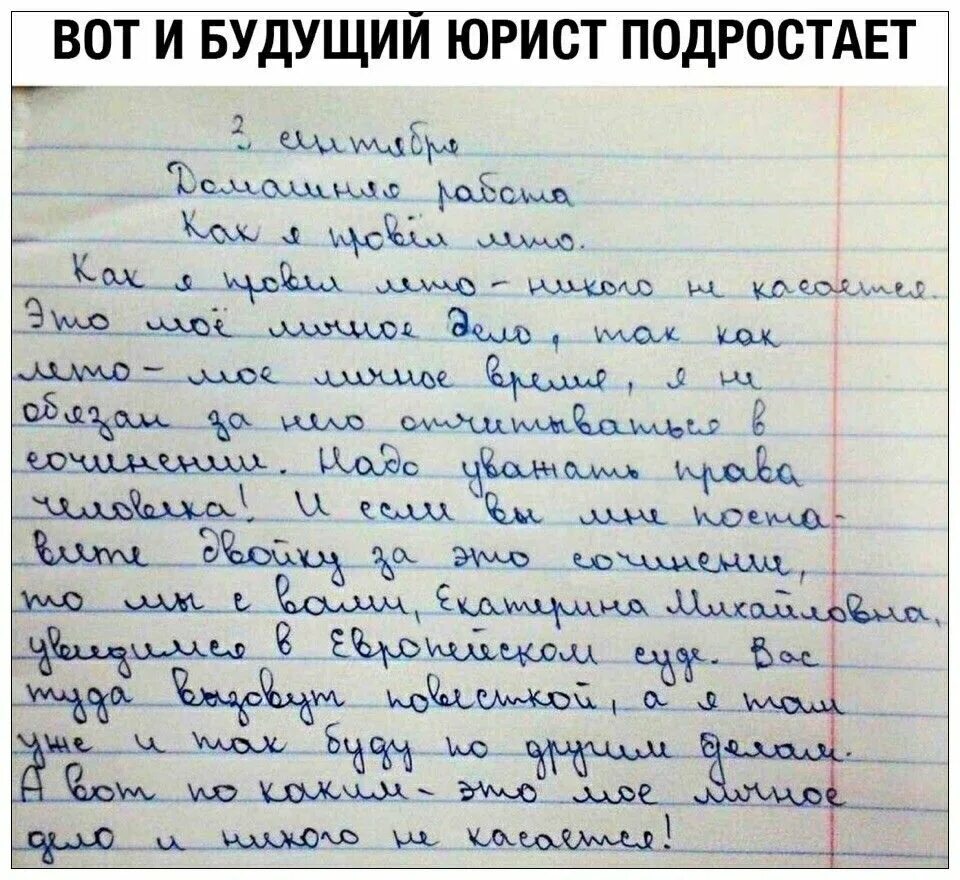 ВОТ И БУДУЩИЙ ЮРИСТ ПОДРОСТАЕТ
3 сентября
Домашняя работа
Как я провёл лето.
Как я провел лето - никого не касается.
Это моё личное дело, так как
лето - мое личное время, я не
обязан за него отчитываться в
сочинении. Надо уважать права
человека! И если вы мне поста-
вите двойку за это сочинение,
то мы с вами, Екатерина Михайловна,
увидимся в Европейском суде. Вас
туда вызовут повесткой, а я там
уже и так буду по другим делам.
А вот по каким - это мое личное
дело и никого не касается!